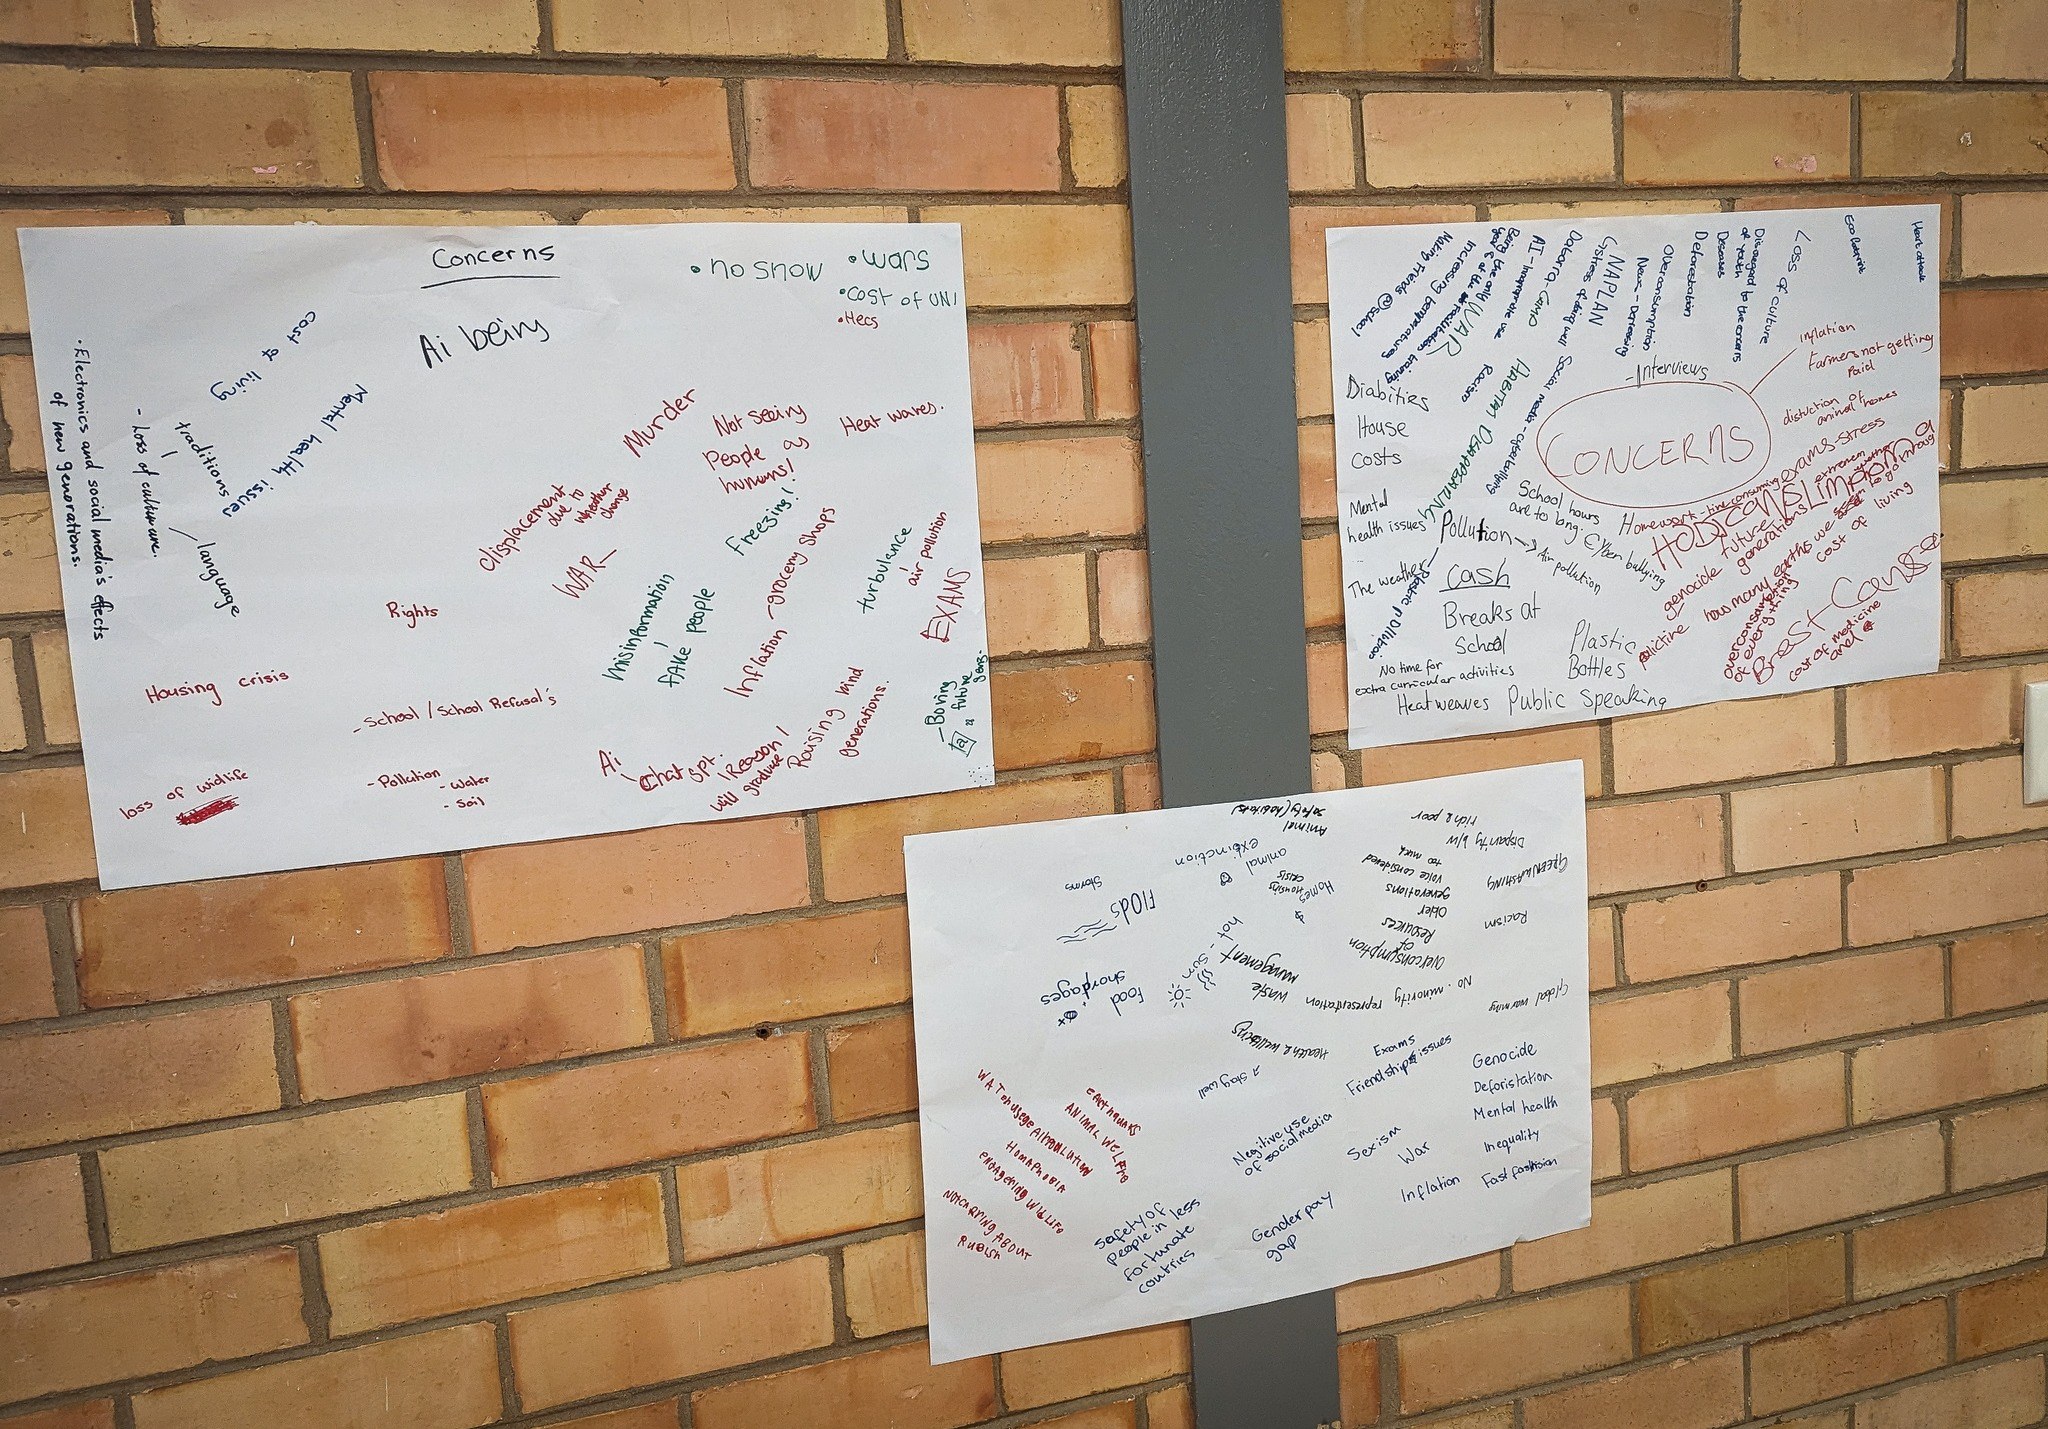 Concerns
Ai being
• no snow
• wars
• Cost of UNI
• Hecs
cost of living
Mental health issues
• Electronics and social media's effects
of new genorations.
- Loss of culture
traditions
language
Murder
Not Seeing
People as
humans!
Heat waves.
displacement
due to
Wheather
change
WAR
freezing!
misinformation
fake people
Inflation - grocery shops
turbulance
air pollution
EXAMS
Rights
Housing crisis
- School / School Refusal's
- Pollution
- Water
- Soil
loss of widlife
Ai
Chat gpt.
1 Reason I
will graduate
Raising kind
generations.
- Boring
future
gens.
Heart attack
Eco footprint
Loss of culture
Disregard to the concerns
of youth
Diseases
Deforestation
overconsumption
NAPLAN
Stress of doing well
Dabarra-Camp
AI - Inappropriate use
Increasing temperatures
Making Friends @ school
WAR
Racism
Social media - cyberbullying
HABITAT DISAPPEARING
- Interviews
CONCERNS
inflation
Farmers not getting
Paid
distuction of
animal homes
exams-stress
Diabities
House
costs
Mental
health issues
The weather
Pollution
Air pollution
Plastic pollution
School hours
are to long.
Cyber bullying
Homework - time-consuming
extremem
whether
HODJCONSLIMPHOMA
future
generations
genocide
how many earths we
to go through
cost of living
overconsumption
of everything
Brest-Canser
cost of medicine
and
cash
Breaks at
School
Plastic
Bottles
No time for
extra curricular activities
Heat weaves
Public Speaking
Animal
safety (habitats)
animal
extinction
Storms
Flods
Food
shordages
hot - sun
Homes
Housing
crisis
$
Disparity b/w
rich & poor
GREENWASHING
Older
generations
voice considered
too much
Racism
overconsumption
of
Resources
waste
management
No. minority representation
Global warming
Health & wellbeing
stay well
Exams
Friendship issues
Genocide
Deforistation
Mental health
Inequality
Fast fashion
Negitive use
of social media
Sexism
War
Inflation
Gender pay
gap
safety of
People in less
fortunate
countries
EARTHQUAKS
ANIMAL WELFARE
WAT on usege
AIRPOLUTION
HOMAPHOBIA
ENDAGERING WILDLIFE
NOT CARRING ABOUT
RUBISH